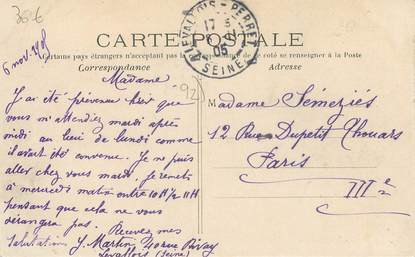 306
LEVALLOIS - PERRET
17
5
05
SEINE
CARTE POSTALE
Certains pays étrangers n'acceptent pas de ce côté se renseigner à la Poste
Correspondance
Adresse
6 nov.
Madame
J'ai été prévenue hier que
vous m'attendiez mardi après
midi au lieu de lundi comme
il avait été convenu. Je ne puis
aller chez vous mardi. Je remets
à mercredi matin entre 10 H ½ 11 H
pensant que cela ne vous
dérangera pas. Recevez mes
Salutations J. Martin 40 rue Rivay
Levallois (Seine)
92
Madame Sémeziés
12 Rue Dupetit Thouars
Paris
III e